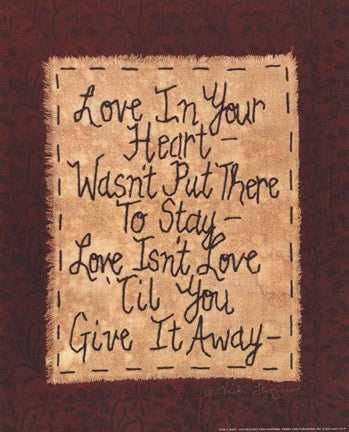 Love In Your
Heart –
Wasn't Put There
To Stay –
Love Isn't Love
'Til You
Give It Away –